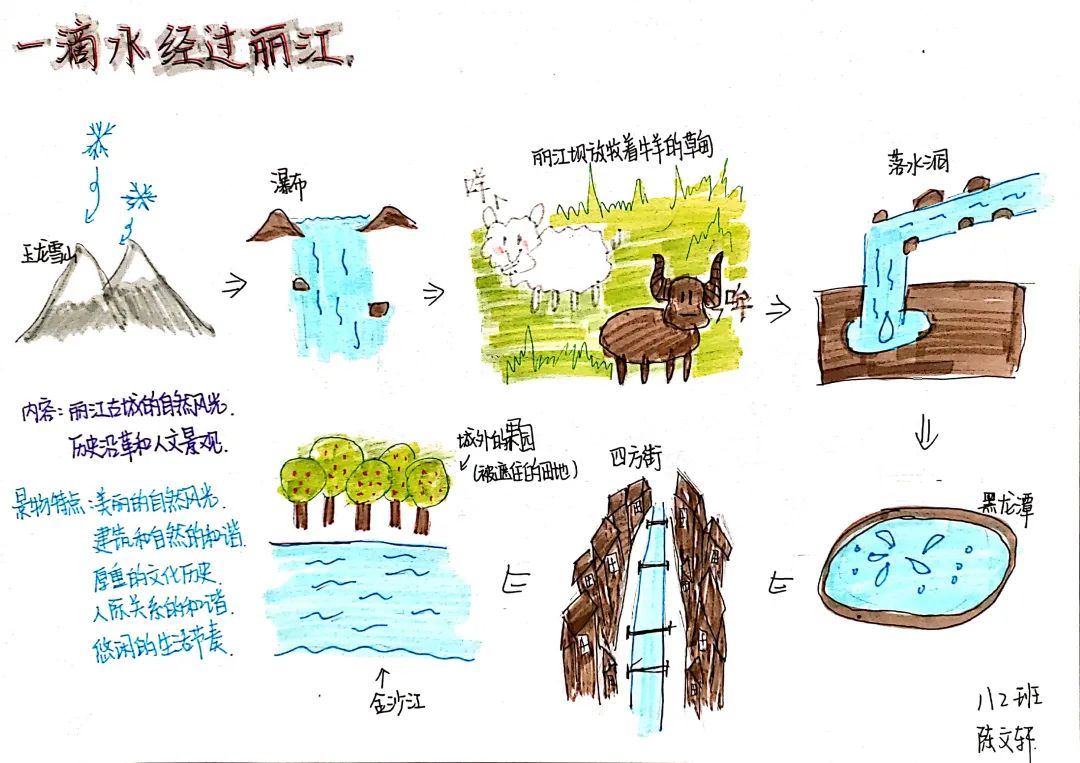 一滴水经过丽江.
玉龙雪山
瀑布
咩
丽江坝放牧着牛羊的草甸
哞
落水洞
黑龙潭
四方街
城外的果园
(被遮住的田地)
金沙江
内容:丽江古城的自然风光.
历史沿革和人文景观.
景物特点:美丽的自然风光.
建筑和自然的和谐.
厚重的文化历史.
人际关系的和谐.
悠闲的生活节奏.
八2班
陈文轩.